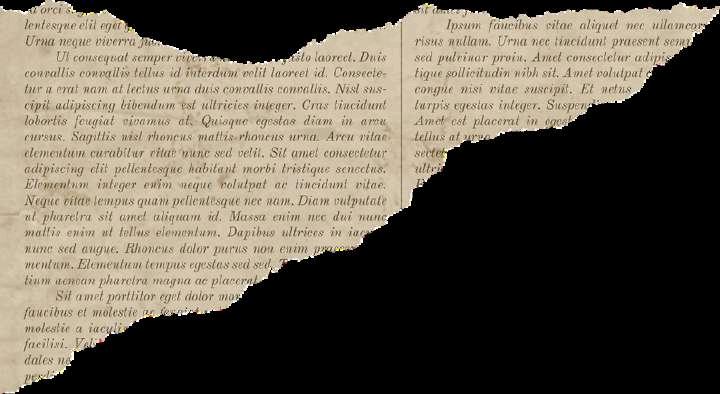 lentesque elit eget
Urna neque viverra
Ut consequat semper justo laoreet. Duis
convallis convallis tellus id interdum velit laoreet id. Consecte-
tur a erat nam at lectus urna duis convallis convallis. Nisl sus-
cipit adipiscing bibendum est ultricies integer. Cras tincidunt
lobortis feugiat vivamus at. Quisque egestas diam in arcu
cursus. Sagittis nisl rhoncus mattis rhoncus urna. Arcu vitae
elementum curabitur vitae nunc sed velit. Sit amet consectetur
adipiscing elit pellentesque habitant morbi tristique senectus.
Elementum integer enim neque volutpat ac tincidunt vitae.
Neque vitae tempus quam pellentesque nec nam. Diam vulputate
ut pharetra sit amet aliquam id. Massa enim nec dui nunc
mattis enim ut tellus elementum. Dapibus ultrices in
nunc sed augue. Rhoncus dolor purus non enim
mentum. Elementum tempus egestas sed sed.
tium aenean pharetra magna ac placerat
Sit amet porttitor eget dolor
faucibus et molestie ac
molestie a iaculis
facilisi.
dales
Ipsum faucibus vitae aliquet nec ullamcor
risus nullam. Urna nec tincidunt praesent
sed pulvinar proin. Amet consectetur
tique sollicitudin nibh sit. Amet volutpat
congue nisi vitae suscipit. Et netus
turpis egestas integer.
Amet est placerat in
tellus at urna